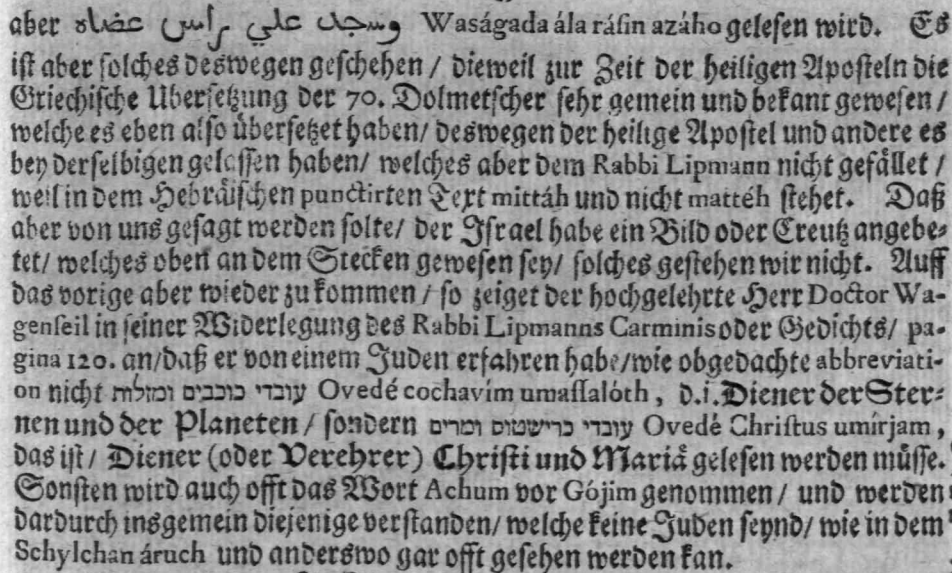 aber وسجد علي راس عضاه Waságada ála ráſin azáho geleſen wird. Es
iſt aber ſolches deswegen geſchehen / dieweil zur Zeit der heiligen Apoſteln die
Griechiſche Uberſetzung der 70. Dolmetſcher ſehr gemein und bekant geweſen /
welche es eben alſo überſetzet haben/ deswegen der heilige Apoſtel und andere es
bey derſelbigen gelaſſen haben/ welches aber dem Rabbi Lipmann nicht gefället /
weil in dem Hebräiſchen punctirten Text mittáh und nicht mattéh ſtehet. Daß
aber von uns geſagt werden ſolte/ der Iſrael habe ein Bild oder Creutz angebe-
tet/ welches oben an dem Stecken geweſen ſey/ ſolches geſtehen wir nicht. Auff
das vorige aber wieder zu kommen / ſo zeiget der hochgelehrte Herr Doctor Wa-
genſeil in ſeiner Widerlegung des Rabbi Lipmanns Carminis oder Gedichts/ pa-
gina 120. an/ daß er von einem Juden erfahren habe/ wie obgedachte abbreviati-
on nicht עובדי כוכבים ומזלות Ovedé cochavím umaſſalóth, d.i. Diener der Ster-
nen und der Planeten / ſondern עובדי כרישטוס ומרים Ovedé Chriſtus umírjam,
das iſt/ Diener (oder Verehrer) Chriſti und Mariä geleſen werden müſſe.
Sonſten wird auch offt das Wort Achum vor Gójim genommen / und werden
dardurch insgemein diejenige verſtanden/ welche keine Juden ſeynd/ wie in dem
Schylchan áruch und anderswo gar offt geſehen werden kan.